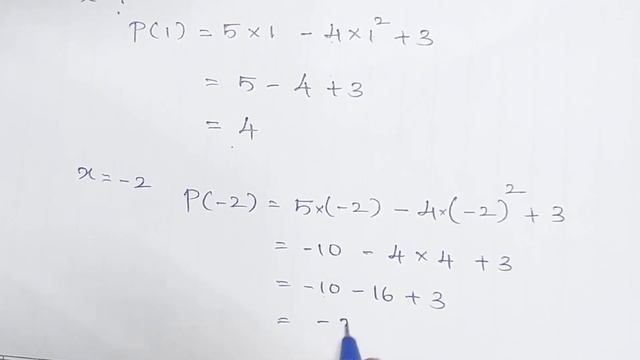 P(1) = 5×1 - 4×1² + 3
= 5 - 4 + 3
= 4
x = -2
P(-2) = 5×(-2) - 4×(-2)² + 3
= -10 - 4 × 4 + 3
= -10 - 16 + 3
= -